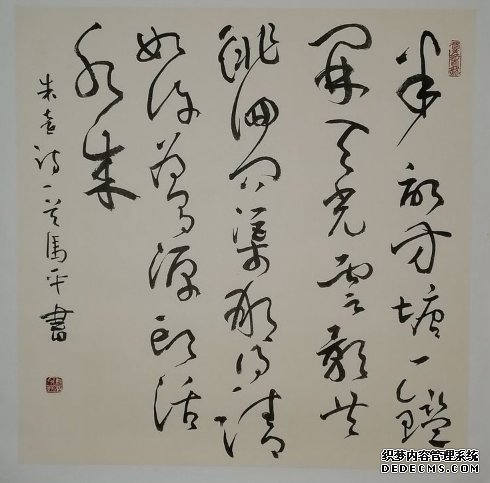 半畝方塘一鑑
開天光雲影共
徘徊问渠那得清
如许为有源头活
水来
朱熹诗一首馬平書
织梦内容管理系统
DEDECMS.COM